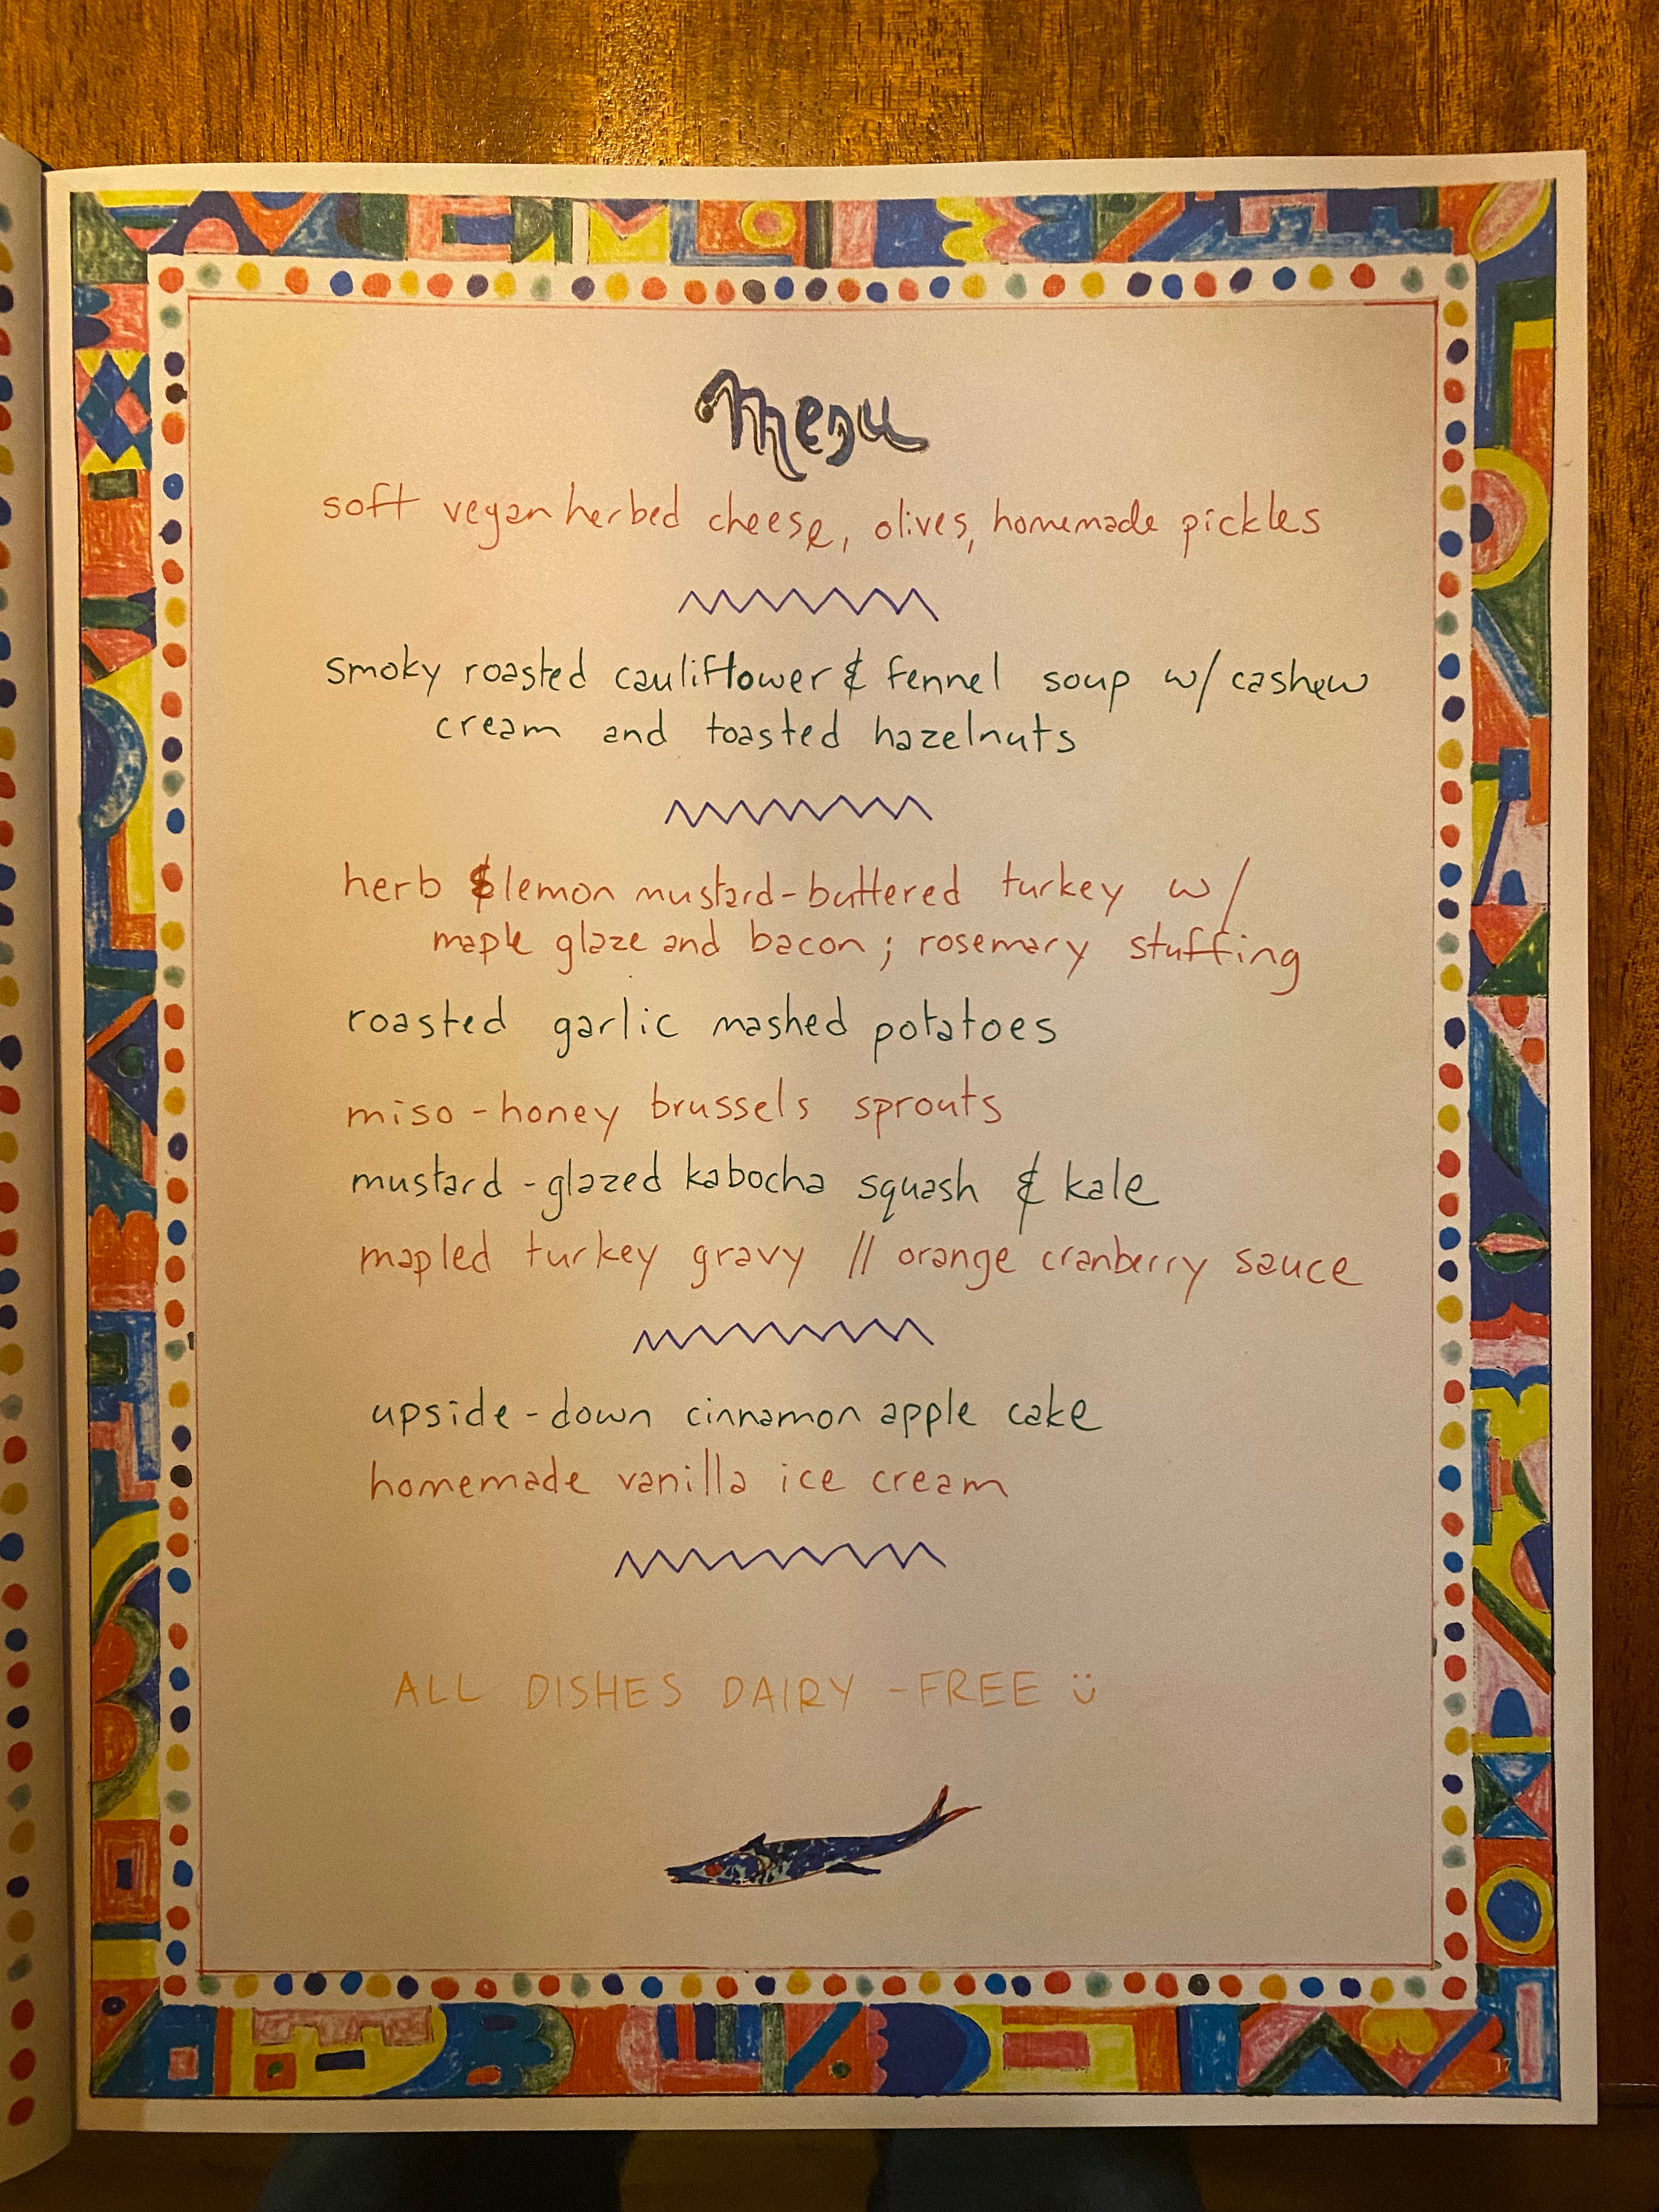 menu
soft vegan herbed cheese, olives, homemade pickles
smoky roasted cauliflower & fennel soup w/ cashew
cream and toasted hazelnuts
herb & lemon mustard-buttered turkey w/
maple glaze and bacon; rosemary stuffing
roasted garlic mashed potatoes
miso-honey brussels sprouts
mustard-glazed kabocha squash & kale
mapled turkey gravy // orange cranberry sauce
upside-down cinnamon apple cake
homemade vanilla ice cream
ALL DISHES DAIRY-FREE ü
17